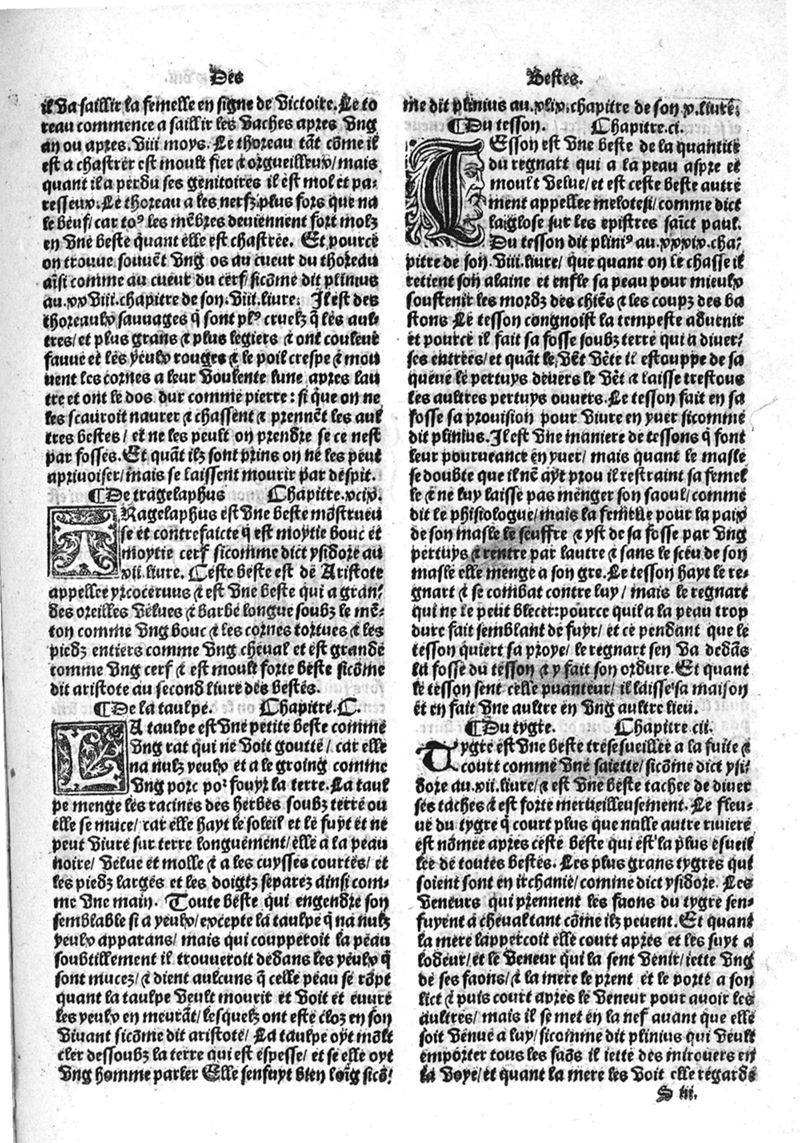 Des
il va saillir la femelle en signe de victoire. Le to
reau commence a saillir les vaches apres vng
an ou apres. viii moys. Le thoreau tāt cōme il
est a chastrer est moult fier ⁊ orgueilleux/ mais
quant il a perdu ses genitoires il est mol et pa-
resseux. Le thoreau a les nerfz plus fors que na
le beuf/ car toꝰ les mēbres deuiennent fort molz
en vne beste quant elle est chastree. Et pource
on trouue souuēt vng os au cueur du thoreau
aīsi comme au cueur du cerf/ sicōme dit plinius
au.xxviii.chapitre de son.viii.liure: Il est des
thoreaulx sauuages q̄ sont plꝰ cruelz q̄ les aul-
tres/ et plus grans ⁊ plus legiers ⁊ ont couleur
fauue et les yeulx rouges ⁊ le poil crespe ⁊ mou
uent les cornes a leur voulente lune apres lau
tre et ont le dos dur comme pierre: si que on ne
les scauroit naurer ⁊ chassent ⁊ prennēt les aul
tres bestes/ et ne les peult on prendre se ce nest
par fosses. Et quāt ilz sont prins on ne les peut
apriuoiser/ mais se laissent mourir par despit.
¶De tragelaphus Chapitre.xcix.
TRagelaphus est vne beste mōstrueu
se et contrefaicte q̄ est moytie bouc et
moytie cerf sicomme dict ysidore au
xii.liure. Ceste beste est de Aristote
appellee yrcoceruus ⁊ est vne beste qui a gran/
des oreilles velues ⁊ barbe longue soubz le mē-
ton comme vng bouc ⁊ les cornes tortues ⁊ les
piedz entiers comme vng cheual et est grande
comme vng cerf ⁊ est moult forte beste sicōme
dit aristote au second liure des bestes.
¶De la taulpe. Chapitre.C.
LA taulpe est vne petite beste comme
vng rat qui ne voit goutte/ car elle
na nulz yeulx et a le groing comme
vng porc poꝛ fouyr la terre. La taul
pe menge les racines des herbes soubz terre ou
elle se muce/ car elle hayt le soleil et le fuyt et ne
peut viure sur terre longuement/ elle a la peau
noire/ velue et molle ⁊ a les cuysses courtes/ et
les piedz larges et les doigtz separez ainsi com-
me vne main. Toute beste qui engendre son
semblable si a yeulx/ excepte la taulpe q̄ na nulz
yeulx apparans/ mais qui coupperoit la peau
soubtillement il trouueroit dedans les yeulx q̄
sont mucez/ ⁊ dient aulcuns q̄ celle peau se rōpt
quant la taulpe veult mourir et voit et euure
les yeulx en meurāt/ lesquelz ont este cloz en son
viuant sicōme dit aristote/ La taulpe oyt mōlt
cler dessoubz la terre qui est espesse/ et se elle oyt
vng homme parler Elle senfuyt bien loīg sicō/
Bestes.
me dit plinius au.xlix.chapitre de son.x.liure.
¶Du tesson. Chapitre.ci.
TEsson est vne beste de la quantite
du regnart qui a la peau aspre et
moult velue/ et est ceste beste autre
ment appellee melotesi/ comme dict
la glose sur les epistres saīct paul.
Du tesson dit pliniꝰ au.xxxix.cha/
pitre de son.viii.liure/ que quant on le chasse il
retient son alaine et enfle sa peau pour mieulx
soustenir les mordz des chiēs ⁊ les coupz des ba
stons Le tesson congnoist la tempeste aduenir
et pource il fait sa fosse soubz terre qui a diuer/
ses entrees/ et quāt le vēt vēte il estouppe de sa
queue le pertuys deuers le vēt ⁊ laisse trestous
les aultres pertuys ouuers. Le tesson fait en sa
fosse sa prouision pour viure en yuer sicomme
dit plinius. Il est vne maniere de tessons q̄ font
leur pourueance en yuer/ mais quant le masle
se doubte que il nē ayt prou il restraint sa femel
le ⁊ ne luy laisse pas menger son saoul/ comme
dit le phisiologue/ mais la femelle pour la paix
de son masle le seuffre ⁊ yst de sa fosse par vng
pertuys ⁊ rentre par lautre ⁊ sans le sceu de son
masle elle menge a son gre. Le tesson hayt le re-
gnart ⁊ se combat contre luy/ mais le regnart
qui ne le peut blecer: pource quil a la peau trop
dure fait semblant de fuyr/ et ce pendant que le
tesson quiert sa proye/ le regnart sen va dedās
la fosse du tesson ⁊ y fait son ordure. Et quant
le tesson sent celle puanteur/ il laisse sa maison
et en fait vne aultre en vng aultre lieu.
¶Du tygre. Chapitre cii.
Tygre est vne beste tresesueillee a la fuite ⁊
court comme vne saiette/ sicōme dict ysi/
dore au.xii.liure/ ⁊ est vne beste tachee de diuer
ses taches ⁊ est forte merueilleusement. Le fleu-
ue du tygre q̄ court plus que nulle autre riuiere
est nōmee apres ceste beste qui est la plus esueil
lee de toutes bestes. Les plus grans tygres qui
soient sont en irchanie/ comme dict ysidore. Les
veneurs qui prennent les faons du tygre sen-
fuyent a cheual tant cōme ilz peuent. Et quant
la mere lappercoit elle court apres et les suyt a
lodeur/ et le veneur qui la sent venir/ iette vng
de ses faons/ ⁊ la mere le prent et le porte a son
lict ⁊ puis court apres le veneur pour auoir les
aultres/ mais il se met en la nef auant que elle
soit venue a luy/ sicomme dit plinius qui veult
emporter tous les faōs il iette des mirouers en
la voye/ et quant la mere les voit elle regarde
S iii.